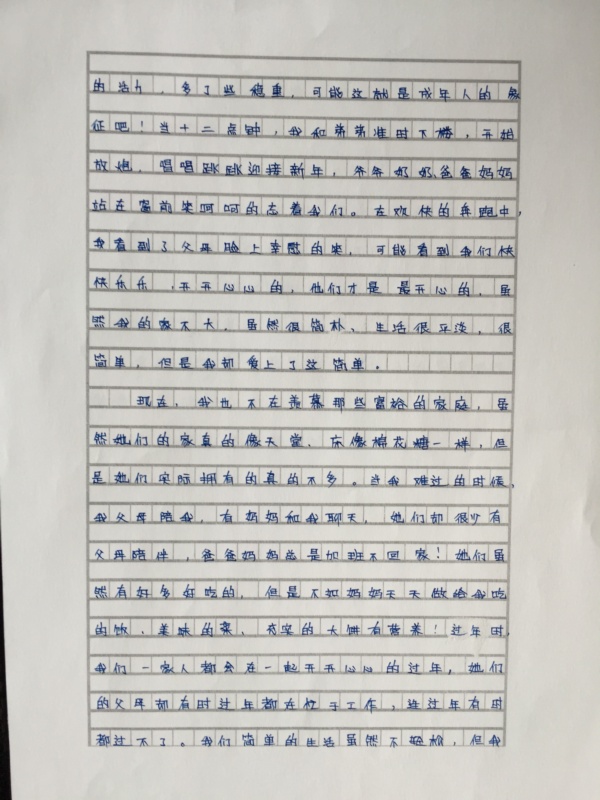 的活力，多了些稳重，可能这就是成年人的象
征吧！当十二点钟，我和弟弟准时下楼，开始
放炮，唱唱跳跳迎接新年，爷爷奶奶、爸爸妈妈
站在窗前笑呵呵的看着我们。在欢快的奔跑中，
我看到了父母脸上幸慰的笑，可能看到我们快
快乐乐，开开心心的，他们才是最开心的，虽
然我的家不大，虽然很简朴、生活很平淡，很
简单，但是我却爱上了这简单。
现在，我也不在羡慕那些富裕的家庭，虽
然她们的家真的像天堂、床像棉花糖一样，但
是她们实际拥有的真的不多。当我难过的时候，
我父母陪我，有奶奶和我聊天，她们却很少有
父母陪伴，爸爸妈妈总是加班不回家！她们虽
然有好多好吃的，但是不如奶奶天天做给我吃
的饭，美味的菜，夯实的大饼有营养！过年时，
我们一家人都会在一起开开心心的过年，她们
的父母却有时过年都在忙于工作，连过年有时
都过不了。我们简单的生活虽然不轻松，但我